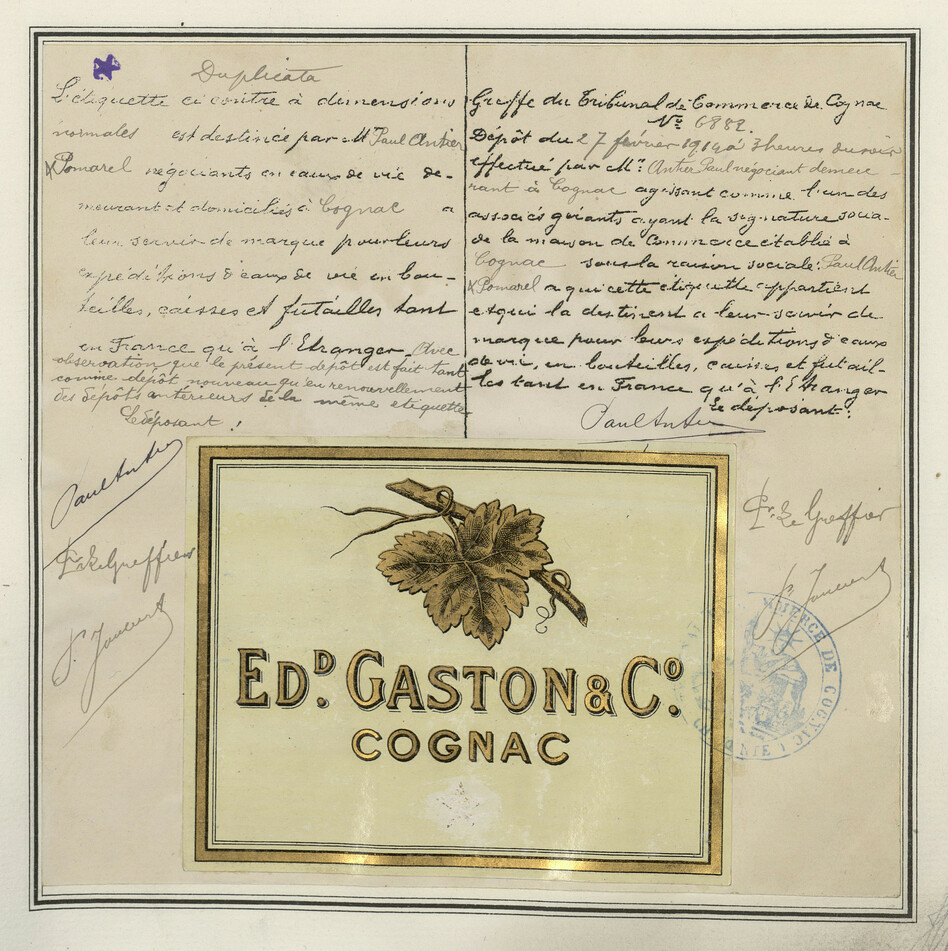 Duplicata
L'étiquette ci contre à dimensions
normales est destinée par Mr Paul Antier
& Pomarel négociants en eaux de vie de-
meurant et domiciliés à Cognac a
leur servir de marque pour leurs
expéditions d'eaux de vie en bou-
teilles, caisses et futailles tant
en France qu'à l'Etranger. Avec
observation que le présent dépôt est fait tant
comme dépôt nouveau qu'en renouvellement
des dépôts antérieurs de la même etiquette
Le déposant!
Paul Antier
Pr. Le Greffier
Greffe du Tribunal de Commerce de Cognac
No 6882.
Dépôt du 27 février 1914 à 3 heures du soir
effectué par Mr. Antier Paul négociant demeu-
rant à Cognac agissant comme l'un des
associés gérants ayant la signature socia-
de la maison de Commerce établie à
Cognac sous la raison sociale: Paul Antier
& Pomarel a qui cette étiquette appartient
et qui la destinent a leur servir de
marque pour leurs expéditions d'eaux
de vie, en bouteilles, caisses et futail-
les tant en France qu'à l'Etranger
Le déposant!
Paul Antier
Pr. Le Greffier
EDD. GASTON & CO.
COGNAC
MMERCE DE COGNAC